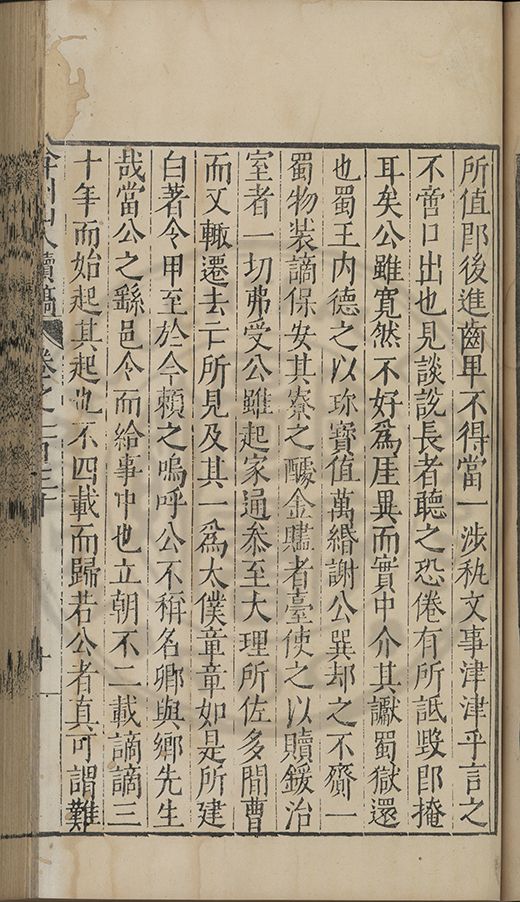 所值即後進齒卑不得當一涉秇文事津津乎言之
不啻口出也見談說長者聽之恐倦有所詆毀即掩
耳矣公雖寬然不好為厓異而實中介其讞蜀獄還
也蜀王內德之以珎寶值萬緡謝公巽却之不齎一
蜀物裝謫保安其寮之醵金贐者臺使之以贖鍰治
室者一切弗受公雖起家通叅至大理所佐多閒曹
而又輙遷去亡所見及其一為太僕章章如是所建
白著令甲至於今頼之嗚呼公不稱名卿與鄉先生
哉當公之繇邑令而給事中也立朝不二載謫謫三
十年而始起其起也不四載而歸若公者真可謂難
弇州山人續稿 卷之一百三十